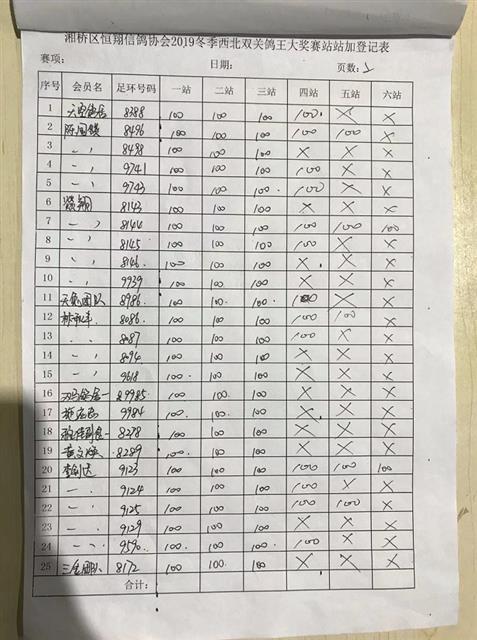 湘桥区恒翔信鸽协会2019冬季西北双关鸽王大奖赛站站加登记表
赛项： 日期： 页数：
序号 会员名 足环号码 一站 二站 三站 四站 五站 六站
1 8388 100 100 100 100 × ×
2 陈国雄 8496 100 100 100 100 100 ×
3 〃 8498 100 100 100 × × ×
4 〃 9741 100 100 100 100 × ×
5 〃 9743 100 100 100 100 × ×
6 翔 8143 100 100 100 × × ×
7 〃 8144 100 100 100 100 100 100
8 〃 8145 100 100 100 100 × ×
9 〃 8146 100 100 100 × × ×
10 〃 9939 100 100 100 × × ×
11 团队 8986 100 100 100 100 × ×
12 林 8086 100 100 100 100 100 ×
13 〃 8087 100 100 100 100 × ×
14 〃 8094 100 100 100 × × ×
15 〃 9618 100 100 100 × × ×
16 89985 100 100 100 × × ×
17 9984 100 100 100 × × ×
18 8278 100 100 100 × × ×
19 黄文 8289 100 100 100 × × ×
20 李 9123 100 100 100 100 100 100
21 〃 9124 100 100 100 100 × ×
22 〃 9125 100 100 100 100 100 ×
23 〃 9129 100 100 100 × × ×
24 〃 9590 100 100 100 100 × ×
25 三 团队 8172 100 100 100 × × ×
合计：